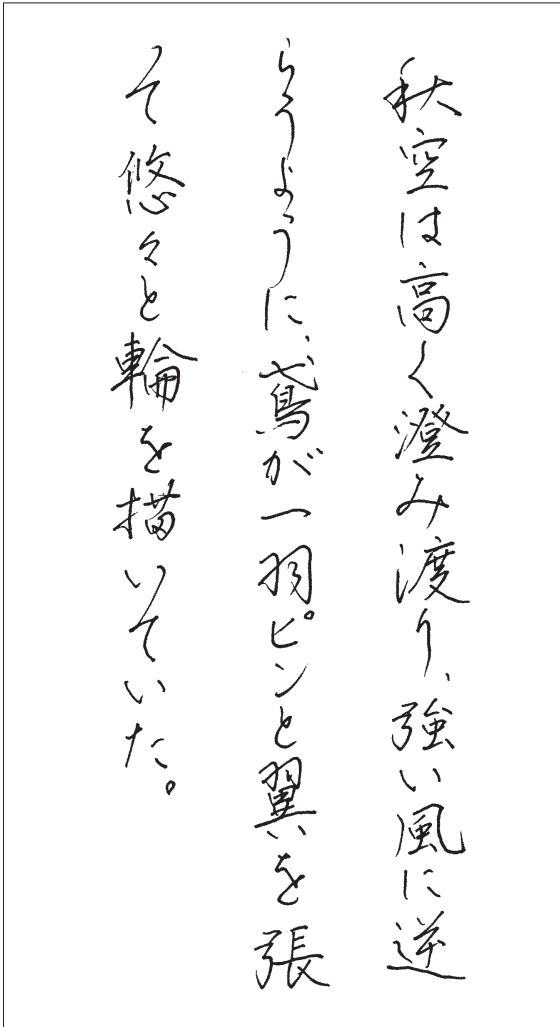 秋空は高く澄み渡り、強い風に逆
らうように、鳶が一羽ピンと翼を張
って悠々と輪を描いていた。